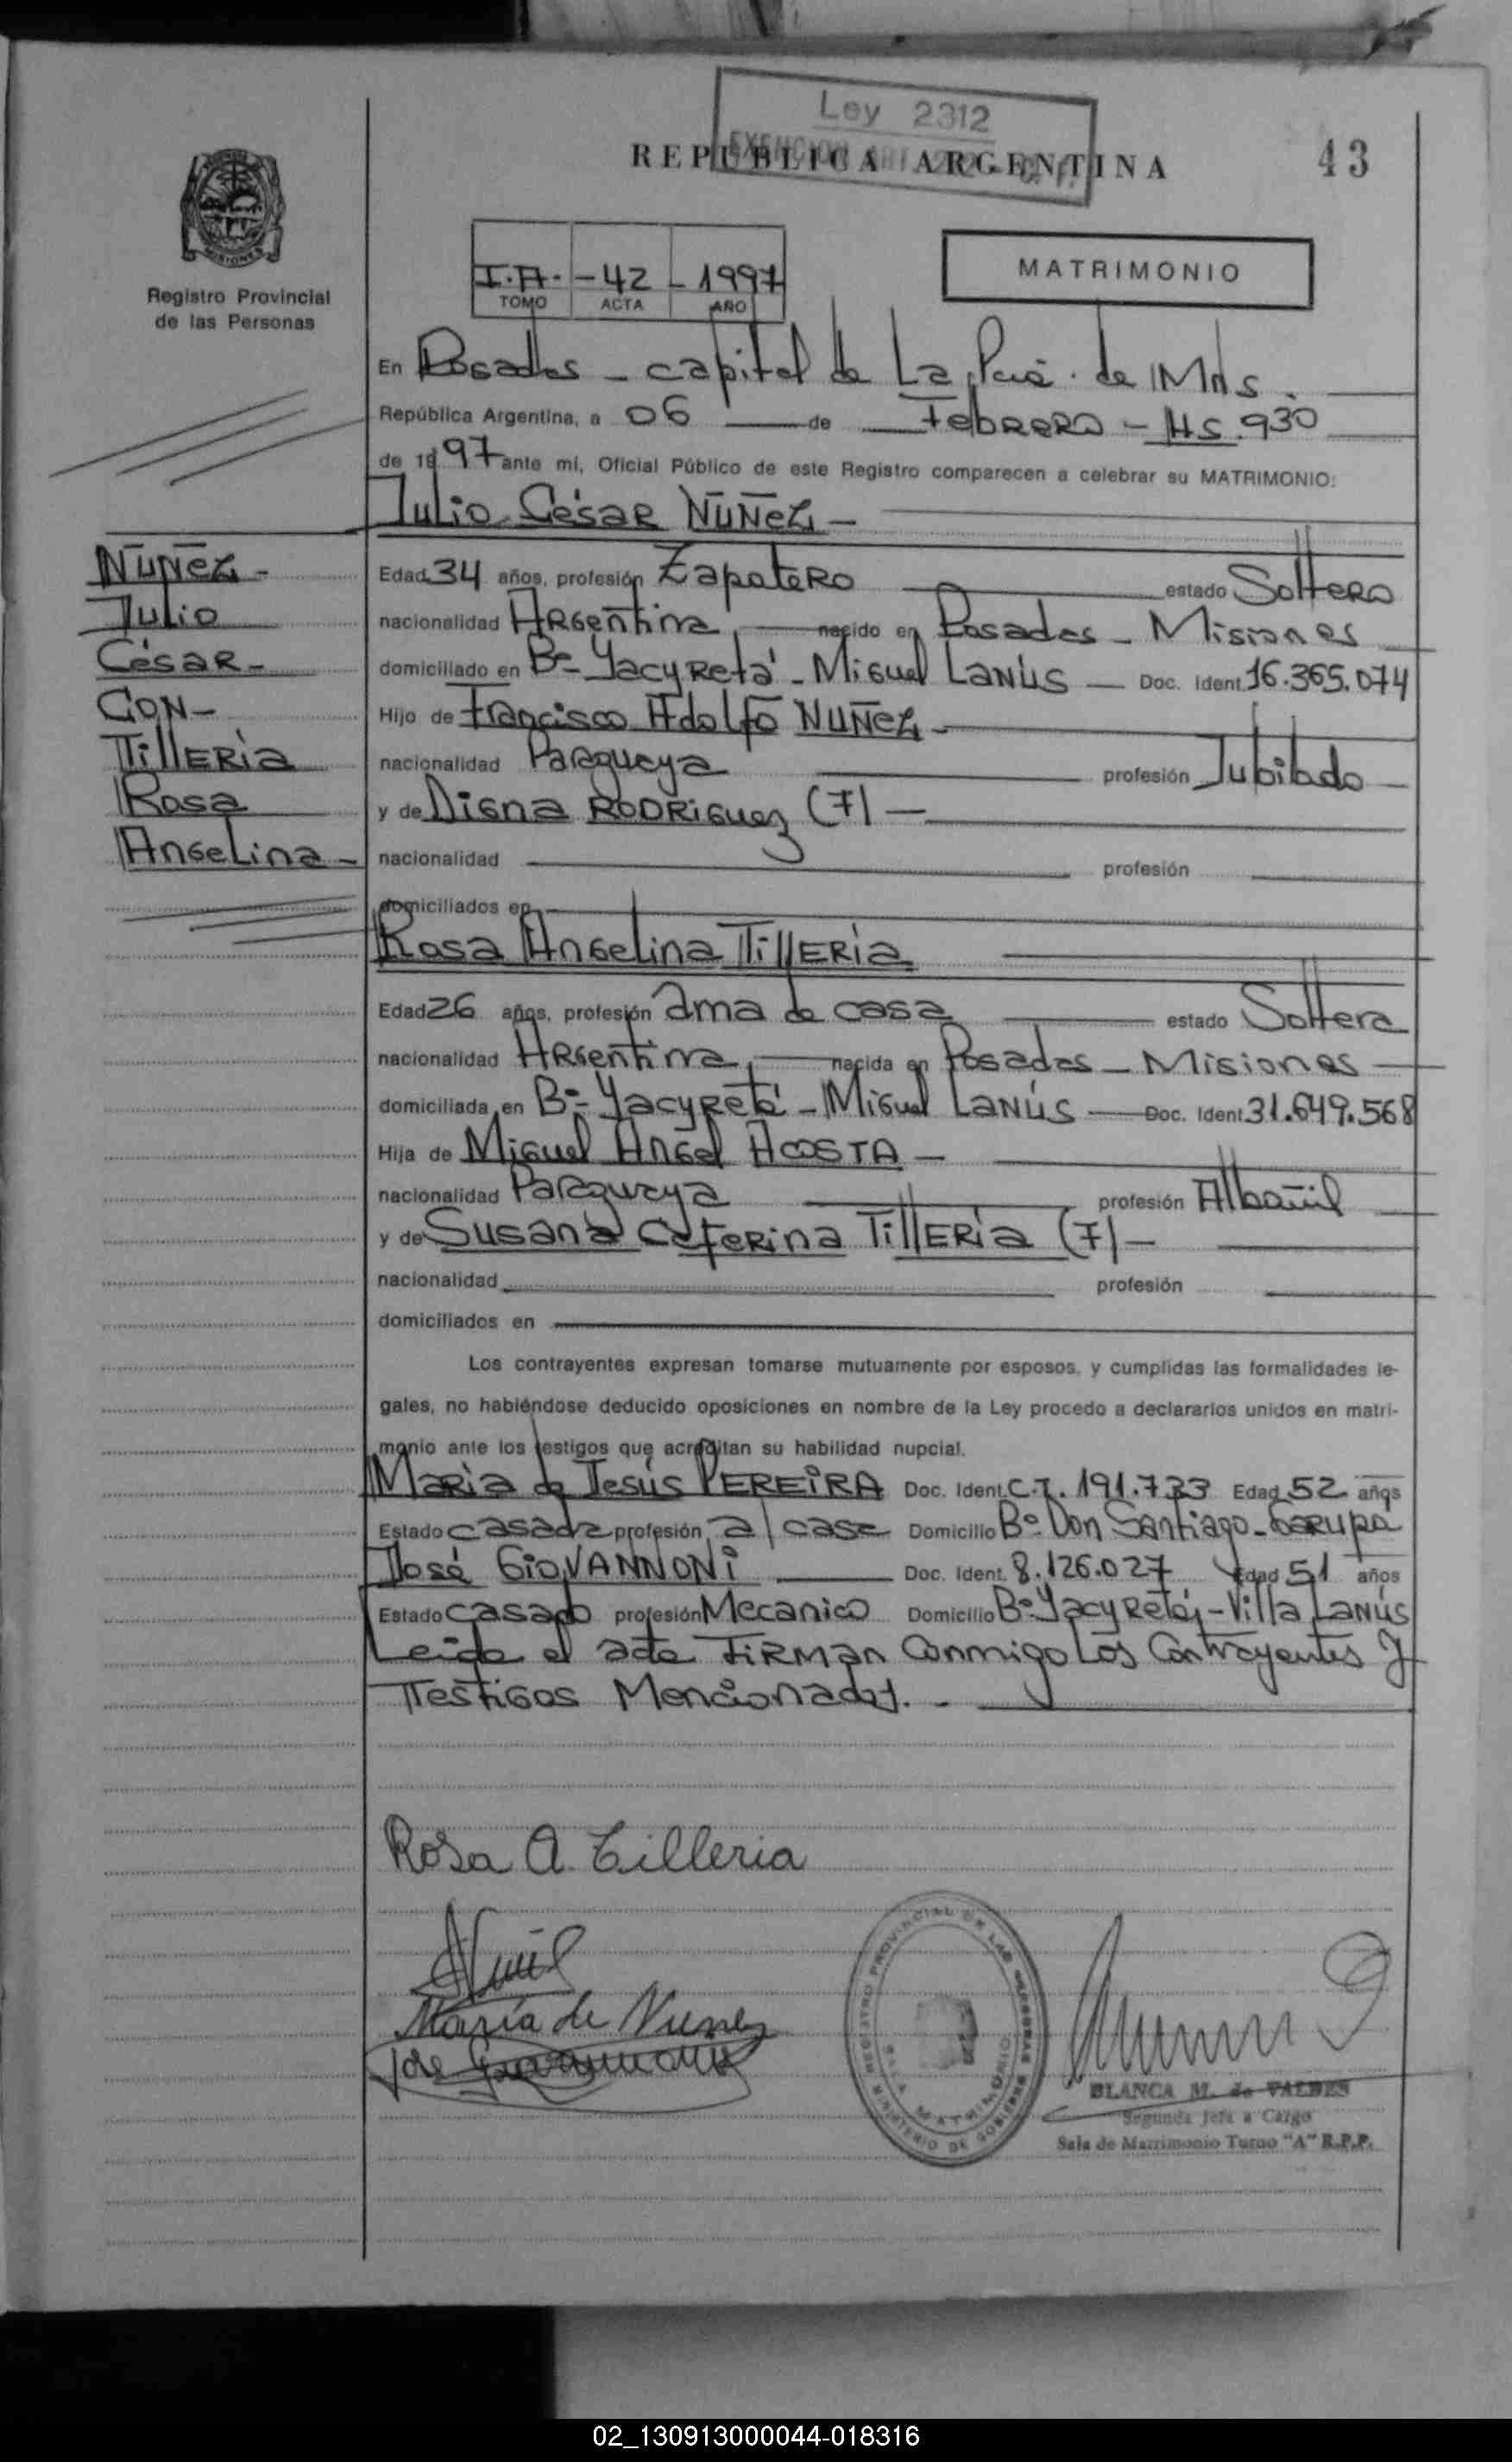 Ley 2312
REPUBLICA ARGENTINA
43
MISIONES
Registro Provincial
de las Personas
T.A. - 42 - 1997
TOMO ACTA AÑO
MATRIMONIO
En Posadas - capital de La Pcia. de Mns.
República Argentina, a 06 de Febrero - Hs. 930
de 1997 ante mí, Oficial Público de este Registro comparecen a celebrar su MATRIMONIO:
Julio César NUÑEZ -
NUÑEZ -
Julio
César -
CON -
TillERia
Rosa
Angelina -
Edad 34 años, profesión Zapatero estado Soltero
nacionalidad Argentina, nacido en Posadas - Misiones
domiciliado en Bº Yacyretá - Miguel Lanús - Doc. Ident. 16.365.074
Hijo de Francisco Adolfo NUÑEZ -
nacionalidad Paraguaya profesión Jubilado
y de Digna RODRIGUEZ (F) -
nacionalidad profesión
domiciliados en
Rosa Angelina TillERia
Edad 26 años, profesión ama de casa estado Soltera
nacionalidad Argentina, nacida en Posadas - Misiones
domiciliada en Bº Yacyretá - Miguel Lanús - Doc. Ident. 31.649.568
Hija de Miguel Angel ACOSTA -
nacionalidad Paraguaya profesión Albañil
y de Susana Ceferina TillERia (F) -
nacionalidad profesión
domiciliados en
Los contrayentes expresan tomarse mutuamente por esposos, y cumplidas las formalidades le-
gales, no habiéndose deducido oposiciones en nombre de la Ley procedo a declararlos unidos en matri-
monio ante los testigos que acreditan su habilidad nupcial.
Maria de Jesús PEREIRA Doc. Ident. C.I. 191.733 Edad 52 años
Estado casada profesión a/ casa Domicilio Bº Don Santiago - Garupa
José GIOVANNONI Doc. Ident. 8.126.027 Edad 51 años
Estado casado profesión Mecanico Domicilio Bº Yacyretá, - Villa Lanús
Leida el acta firman conmigo los contrayentes y
Testigos Mencionados. -
Rosa A. Tilleria
María de Nunez
José Giovannoni
REGISTRO PROVINCIAL DE LAS PERSONAS
SALA MATRIMONIO
MINISTERIO DE GOBIERNO
BLANCA M. de VALDES
Segunda Jefa a Cargo
Sala de Matrimonio Turno "A" R.P.P.
02_130913000044-018316